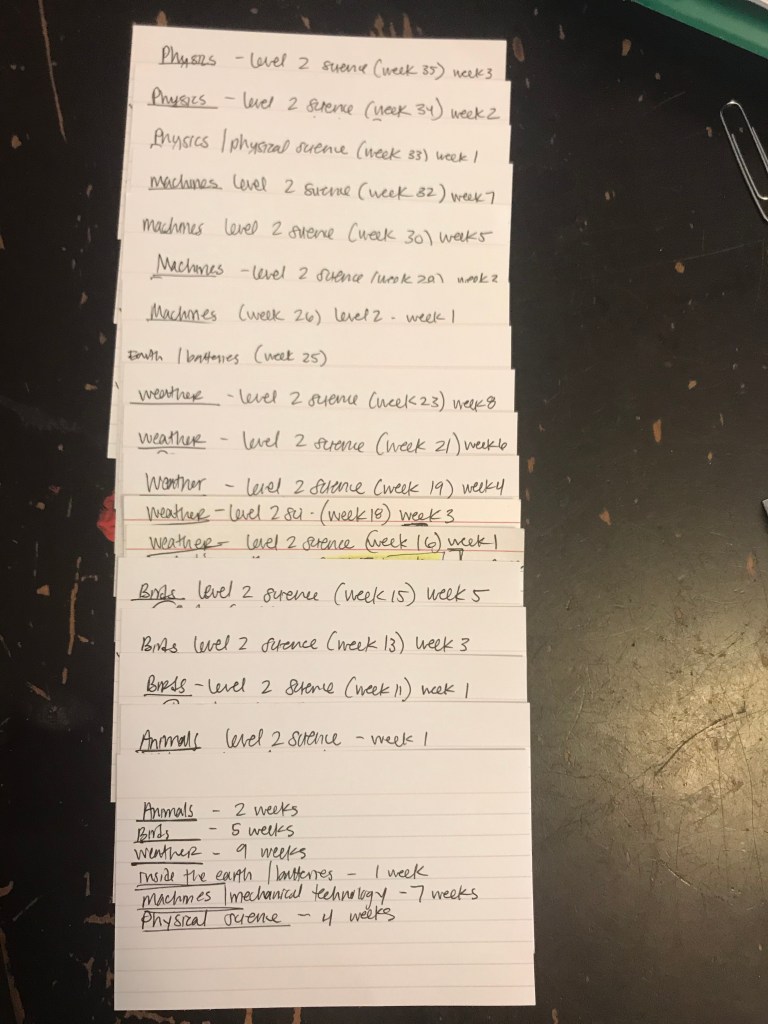 Physics - level 2 science (week 35) week 3
Physics - level 2 science (week 34) week 2
Physics / physical science (week 33) week 1
Machines level 2 science (week 32) week 7
machines level 2 science (week 30) week 5
Machines - level 2 science (week 29) week 2
Machines (week 26) level 2 - week 1
Earth / batteries (week 25)
weather - level 2 science (week 23) week 8
weather - level 2 science (week 21) week 6
Weather - level 2 science (week 19) week 4
weather - level 2 sci - (week 18) week 3
weather - level 2 science (week 16) week 1
Birds level 2 science (week 15) week 5
Birds level 2 science (week 13) week 3
Birds - level 2 science (week 11) week 1
Animals level 2 science - week 1
Animals - 2 weeks
Birds - 5 weeks
weather - 9 weeks
inside the earth / batteries - 1 week
machines / mechanical technology - 7 weeks
Physical science - 4 weeks